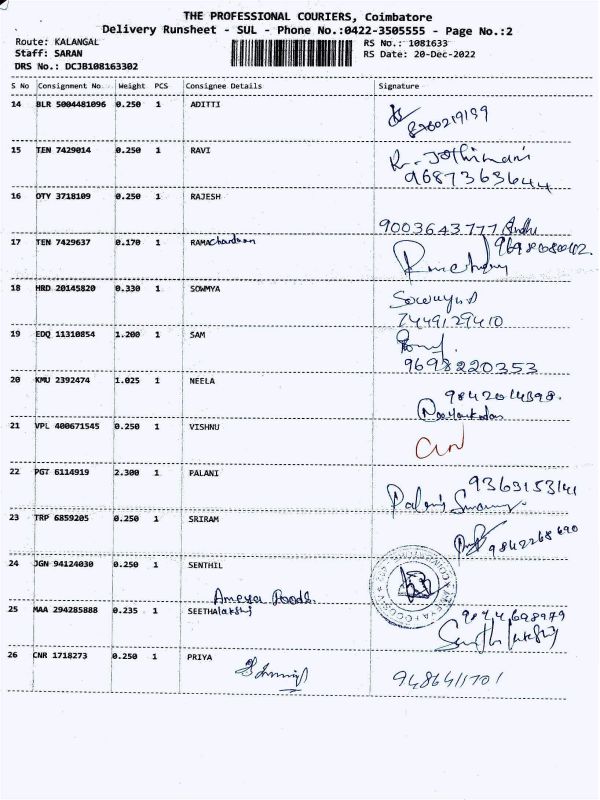 THE PROFESSIONAL COURIERS, Coimbatore
Delivery Runsheet - SUL - Phone No.:0422-3505555 - Page No.:2
Route: KALANGAL
RS No.: 1081633
Staff: SARAN
RS Date: 20-Dec-2022
DRS No.: DCJB108163302
S No Consignment No Weight PCS Consignee Details Signature
14 BLR 5004481096 0.250 1 ADITTI
15 TEN 7429014 0.250 1 RAVI R. Jothimani
9687363644
16 OTY 3718109 0.250 1 RAJESH
9003643777
17 TEN 7429637 0.170 1 RAMAchandran
18 HRD 20145820 0.330 1 SOWMYA
7449129410
19 EDQ 11310854 1.200 1 SAM
9698220353
20 KMU 2392474 1.025 1 NEELA 9842014398.
21 VPL 400671545 0.250 1 VISHNU
22 PGT 6114919 2.300 1 PALANI
23 TRP 6859205 0.250 1 SRIRAM 9842268690
24 JGN 94124030 0.250 1 SENTHIL
Ameya Foods.
25 MAA 294285888 0.235 1 SEETHAlakshmi
26 CNR 1718273 0.250 1 PRIYA
9486411701